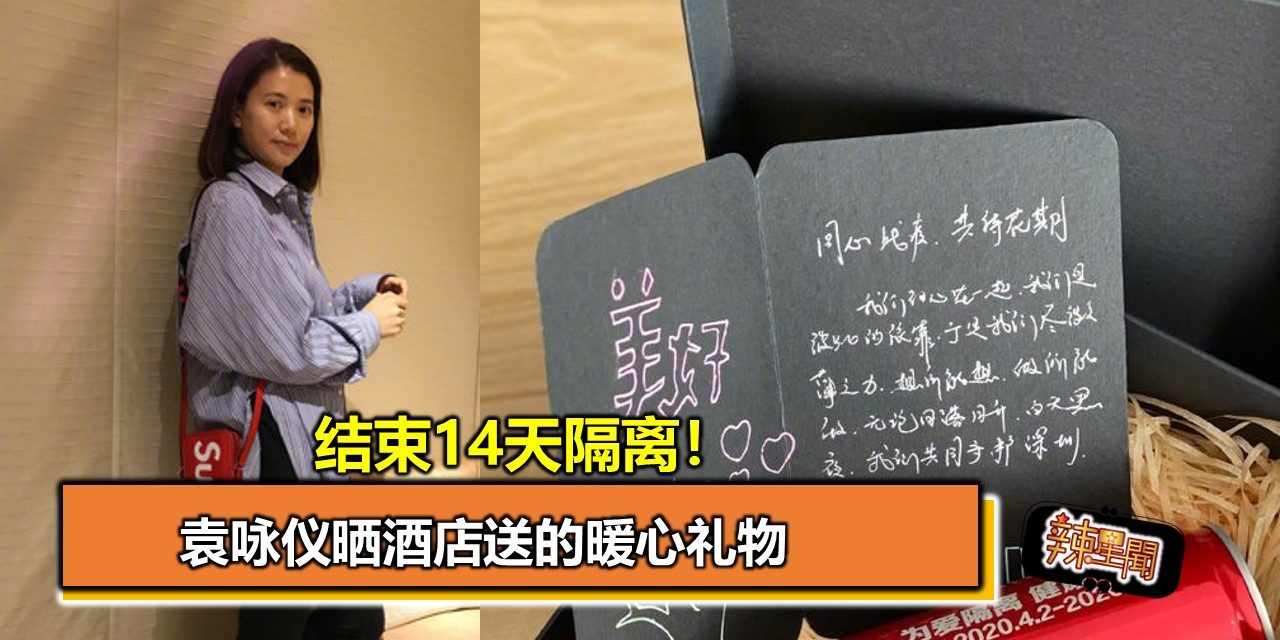 同心战疫、共待花期
我们同心在一起、我们是
彼此的依靠、于是我们尽微
薄之力、想所能想、做所能
做、无论日落日升、白天黑
夜、我们共同守护深圳.
美好
Su
结束14天隔离！
袁咏仪晒酒店送的暖心礼物
辣星聞
为爱隔离 健康
2020.4.2-2020